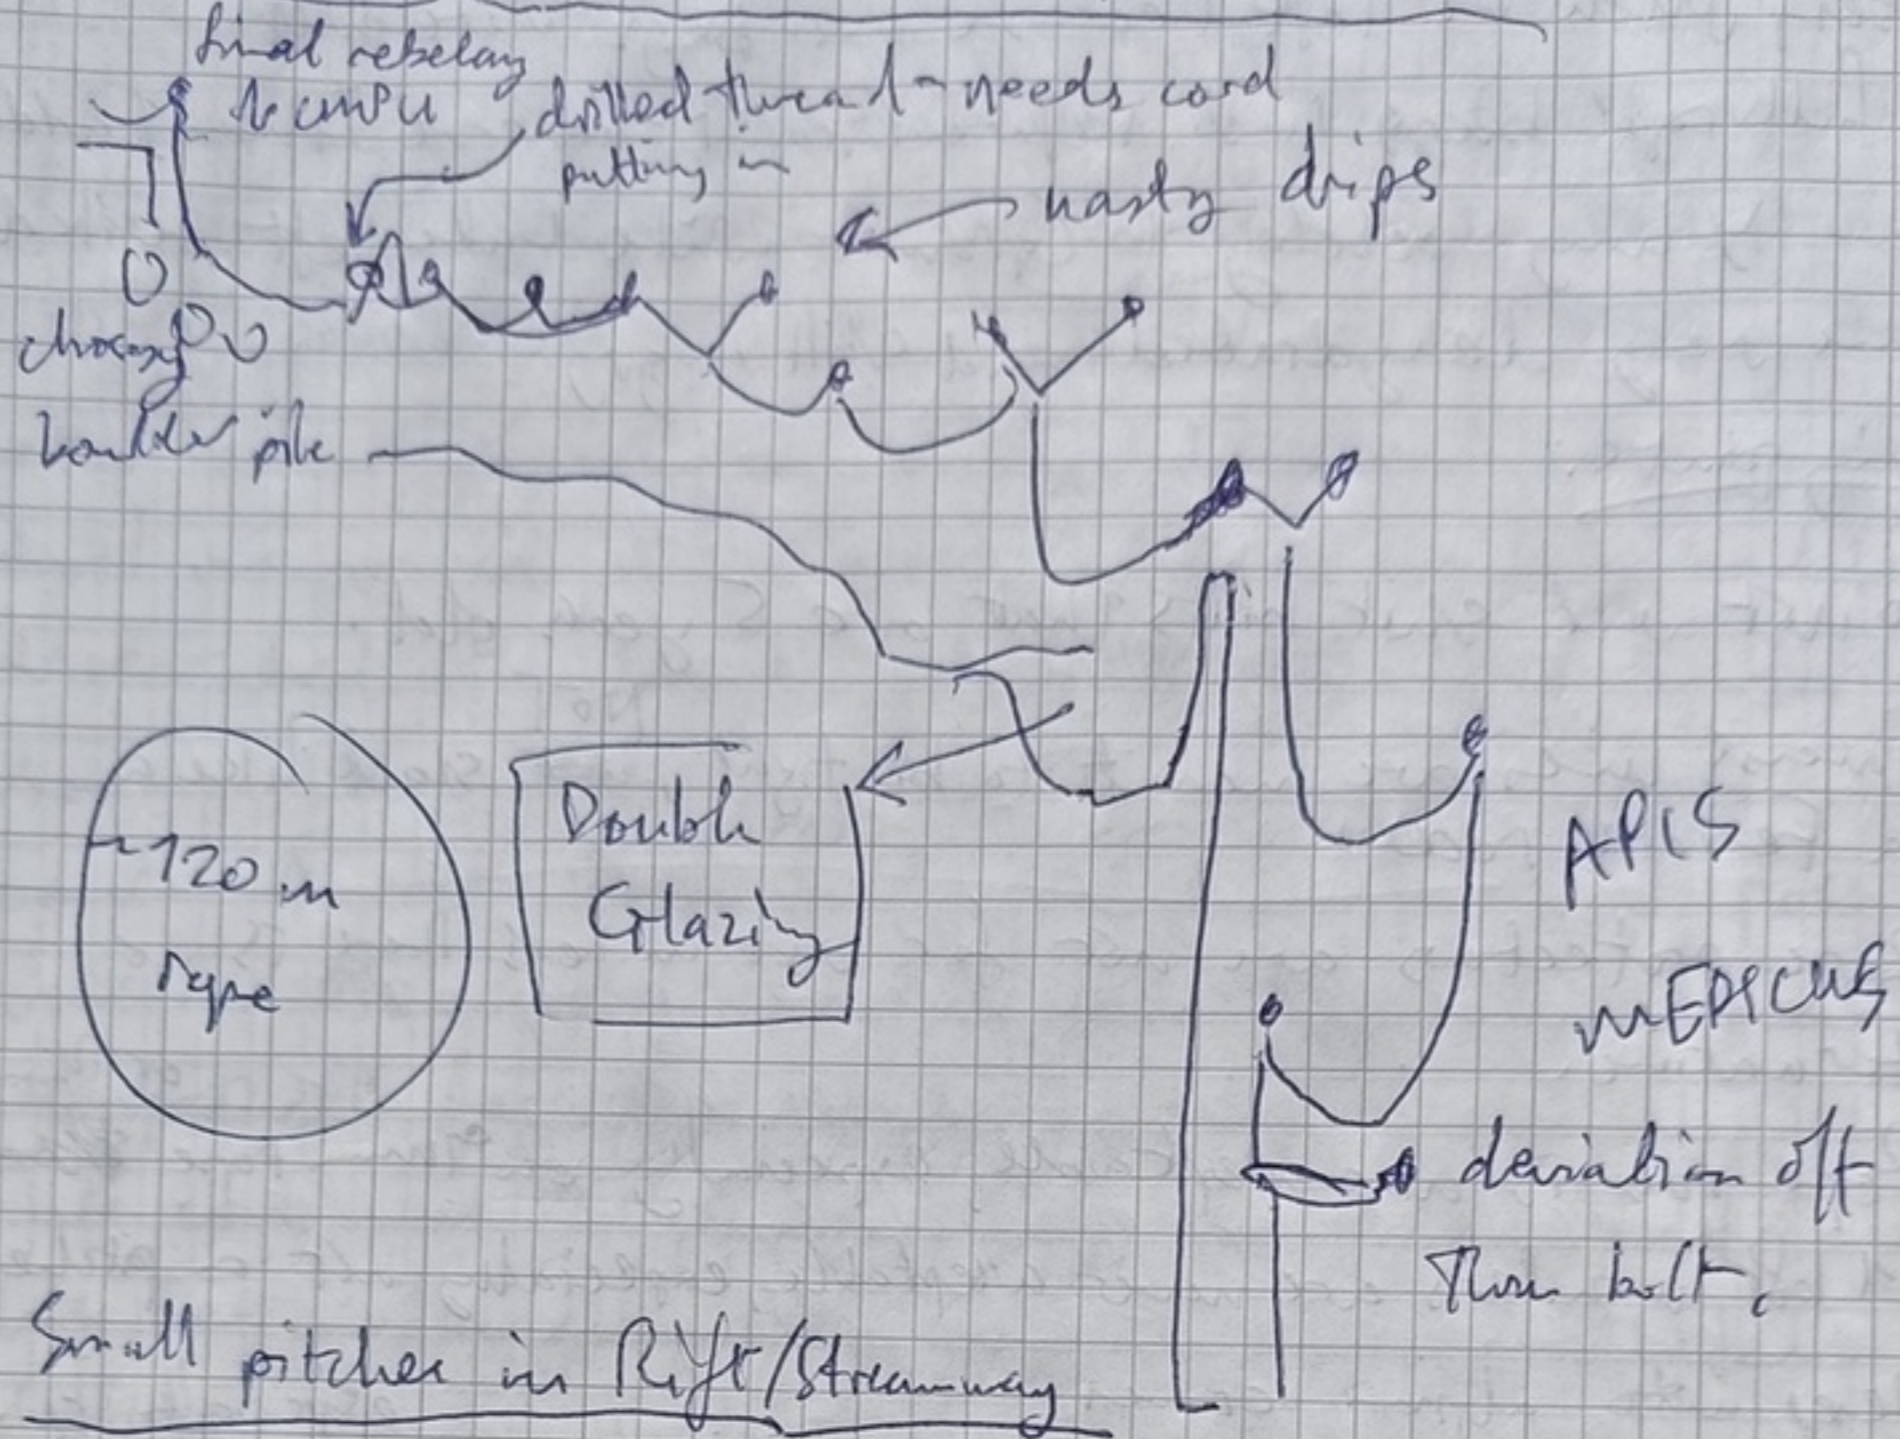 final rebelay
drilled thread - needs cord
putting in
nasty drips
chossy
boulder pile
Double
Glazing
~120 m
rope
APIS
MEDICUS
deviation off
Thru bolt.
Small pitches in Rift/Streamway